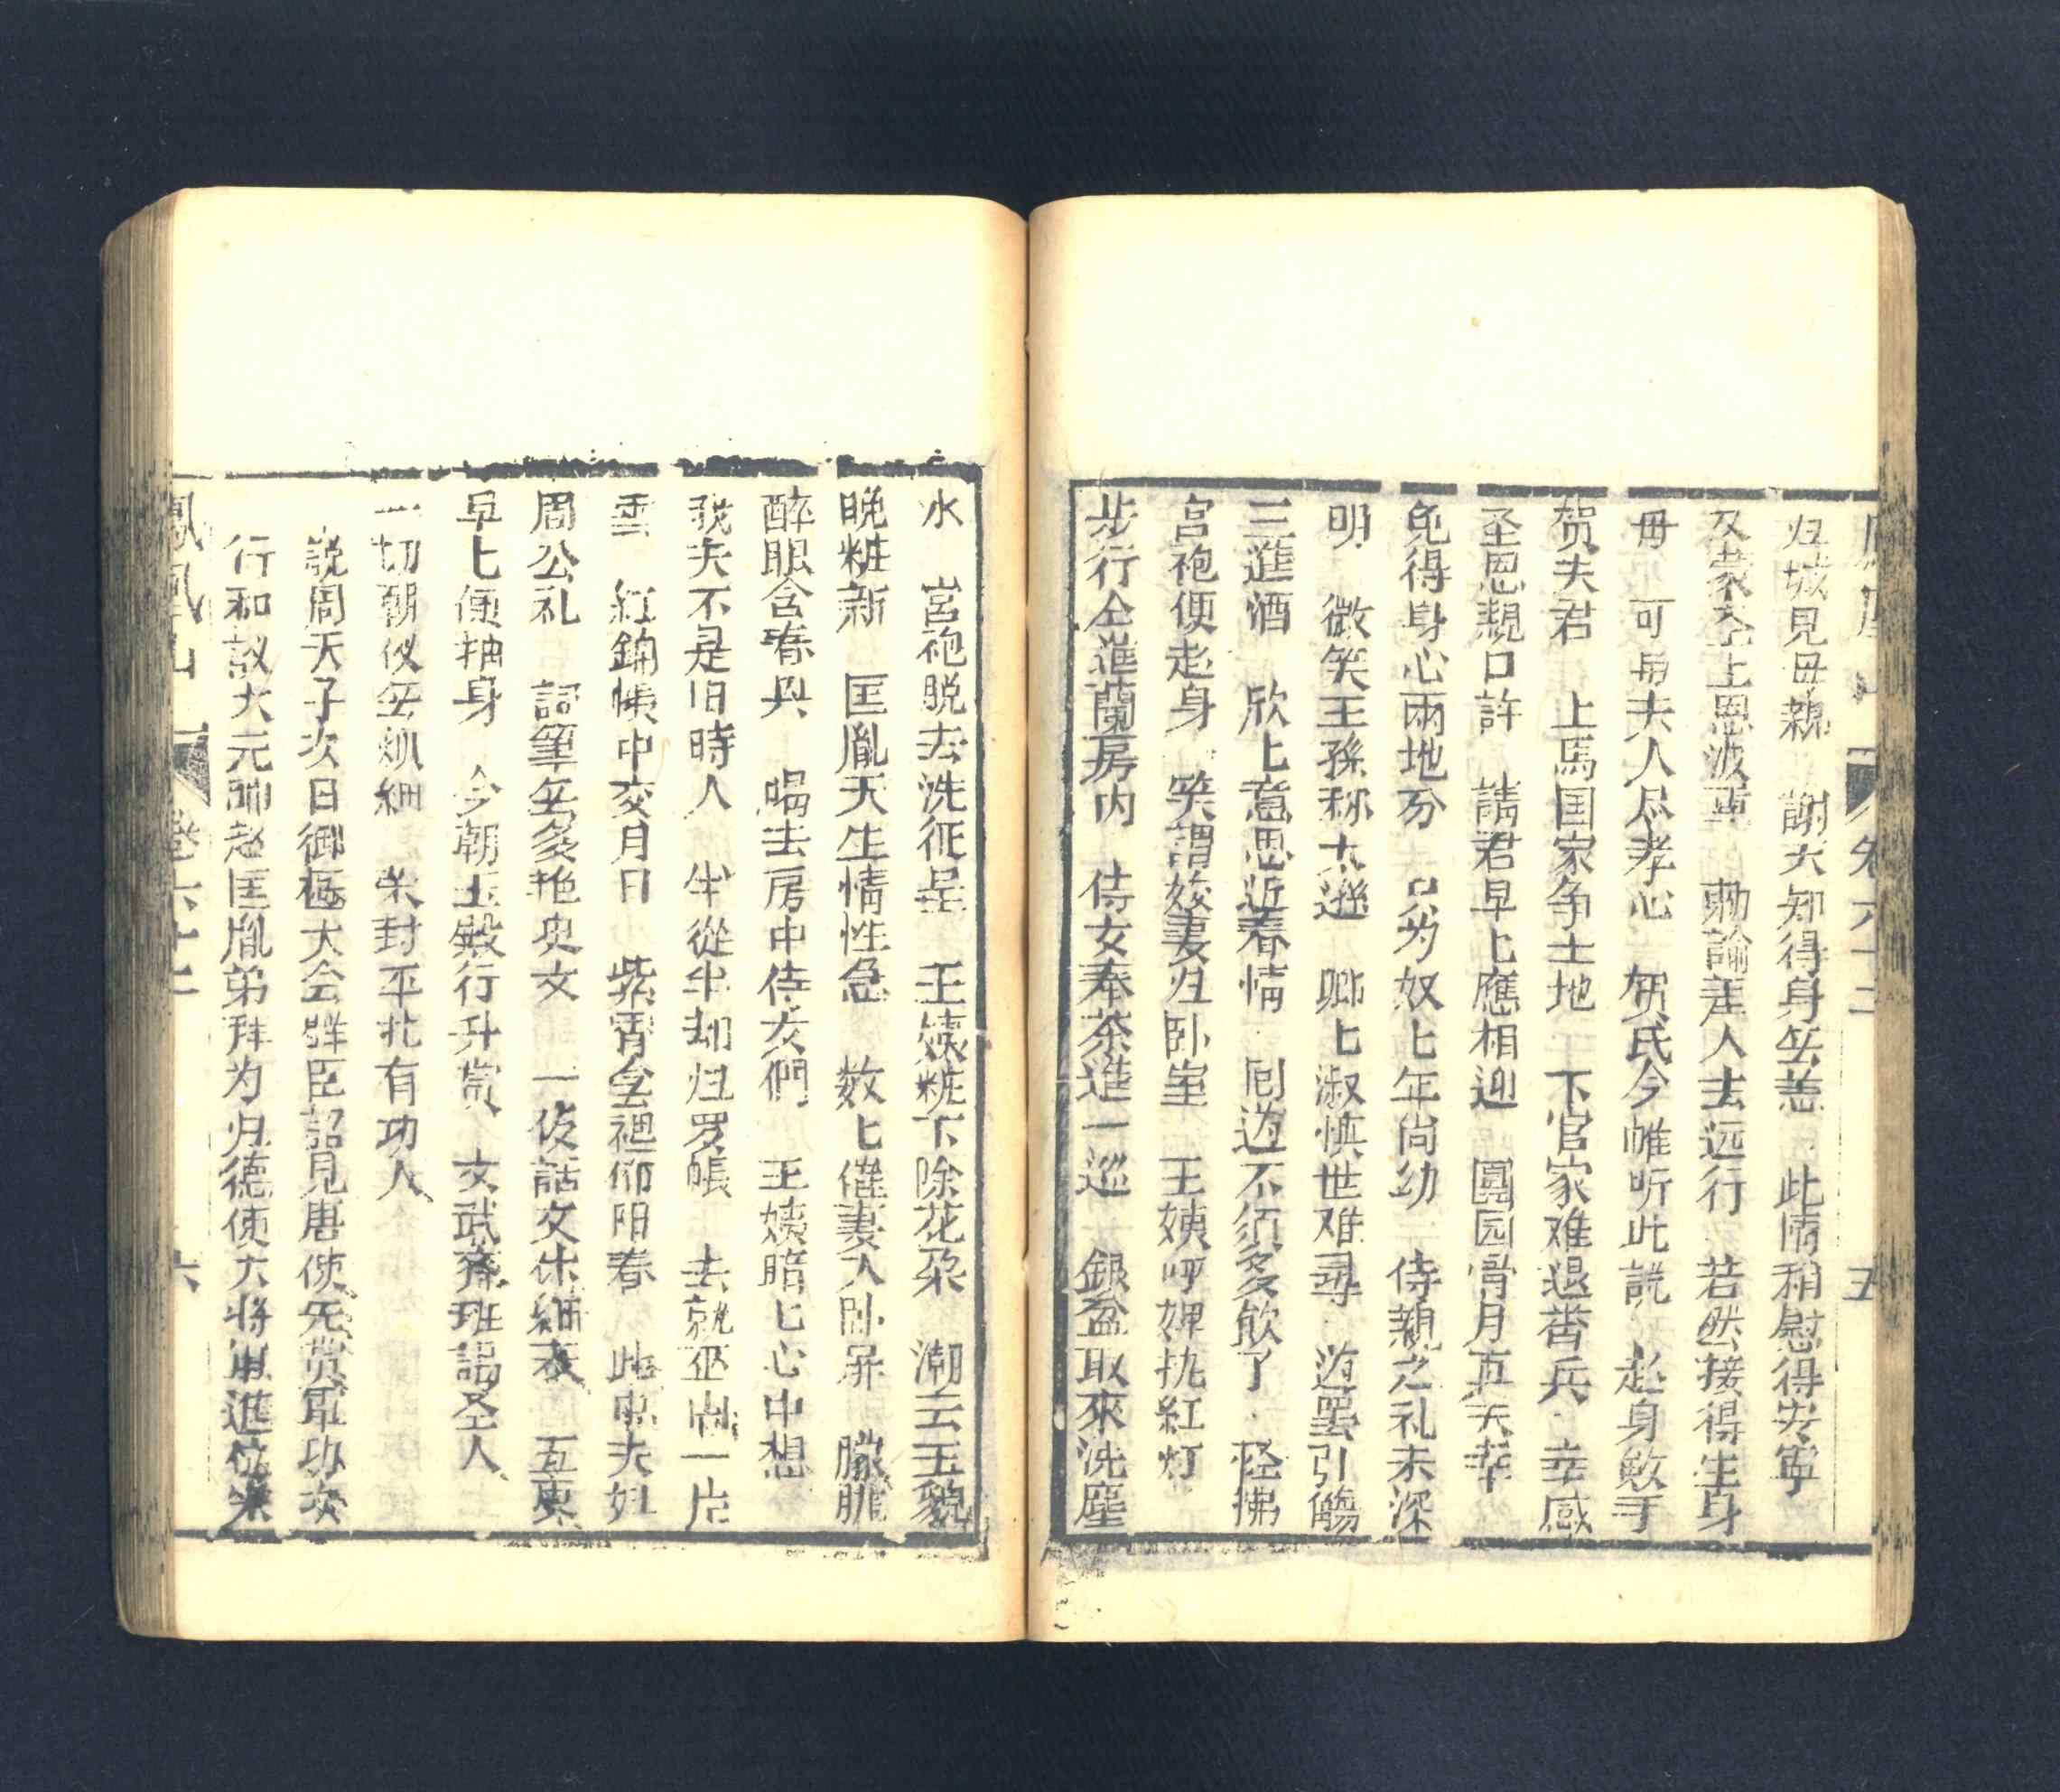 归城見母親　謝大知得身無恙　此情稍慰得安寧
又蒙圣上恩波重　勅諭差人去远行　若然接得生身
母　可与夫人尽孝心　贺氏今帷听此説　起身敛手
贺夫君　上馬国家争土地　下官家难退畨兵　幸感
圣恩親口許　請君早匕應相迎　圓园骨月真天幸
免得身心兩地分　只为奴匕年尚幼　侍親之礼未深
明　微笑王孫称太遜　卿匕淑慎世难尋　迯罢引觴
三進酒　欣匕意思近春情　則过不須多飲了　怪拂
宫袍便起身　笑謂姣妻归卧室　王姨呼婢执紅灯
步行仝進蘭房内　侍女奉茶造一巡　銀盆取來洗塵
水　宫袍脱去洗征尘　王姨粧下除花朶　潮云玉貌
晚粧新　匡胤天生情性急　数匕催妻入卧屏　朦朧
醉眼含春興　喝去房中侍女們　王姨暗匕心中想
我夫不是旧時人　半從半却归罗帳　去就巫山一片
雲　紅錦帳中交月日　紫霄宫裡仰阳春　此宵夫妇
周公礼　詞筆無多艳史文　一夜話文休細表　五更
早匕便抽身　今朝玉殿行升赏　文武齊班謁圣人
一切朝仪無烦細　荣封平北有功人
説周天子次日御極大会群臣詔見唐使先赏軍功次
行和議大元帅赵匡胤弟拜为归德使大将軍進位荣
鳳凰山　卷六十二　六
卷六十二　五